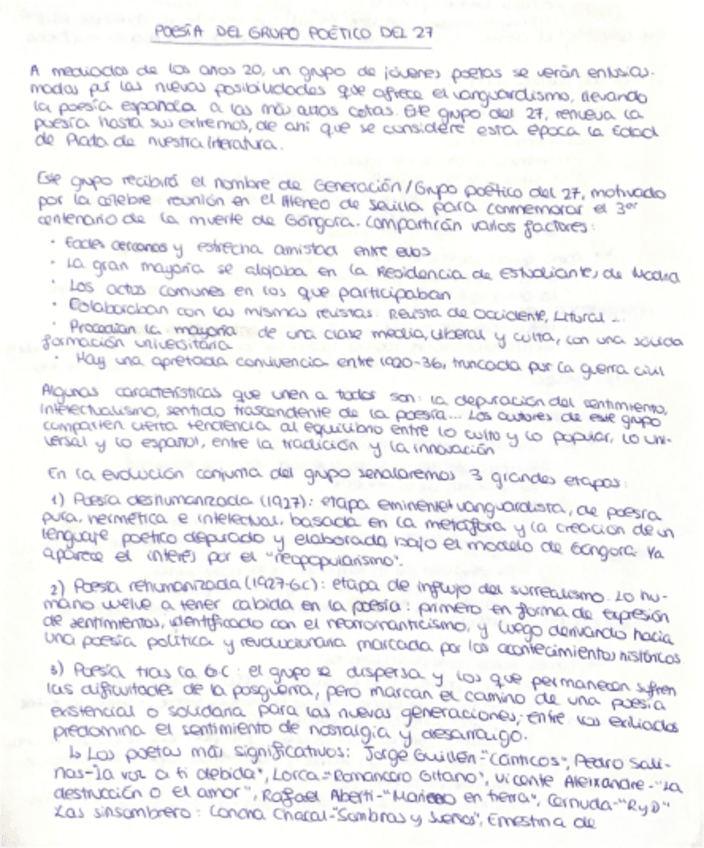 POESÍA DEL GRUPO POÉTICO DEL 27
A mediados de los años 20, un grupo de jóvenes poetas se verán entusias-
mados por las nuevas posibilidades que ofrece el vanguardismo, llevando
la poesía española a las más altas cotas. Este grupo del 27, renueva la
poesía hasta sus extremos, de ahí que se considere esta época la Edad
de Plata de nuestra literatura.
Este grupo recibirá el nombre de Generación/Grupo poético del 27, motivado
por la célebre reunión en el Ateneo de Sevilla para conmemorar el 3er
centenario de la muerte de Góngora. Compartirán varios factores:
· Edades cercanas y estrecha amistad entre ellos
· La gran mayoría se alojaba en la Residencia de Estudiantes de Madrid
· Los actos comunes en los que participaban
· Colaboraban con las mismas revistas: Revista de Occidente, Litoral...
· Procedían la mayoría de una clase media, liberal y culta, con una sólida
formación universitaria
· Hay una apretada convivencia entre 1920-36, truncada por la guerra civil
Algunas características que unen a todos son: la depuración del sentimiento,
intelectualismo, sentido trascendente de la poesía... Los autores de este grupo
comparten cierta tendencia al equilibrio entre lo culto y lo popular, lo uni-
versal y lo español, entre la tradición y la innovación
En la evolución conjunta del grupo señalaremos 3 grandes etapas:
1) Poesía deshumanizada (1927): etapa eminente+ vanguardista, de poesía
pura, hermética e intelectual, basada en la metáfora y la creación de un
lenguaje poético depurado y elaborado bajo el modelo de Góngora. Ya
aparece el interés por el "neopopularismo".
2) Poesía rehumanizada (1927-GC): etapa de influjo del surrealismo. Lo hu-
mano vuelve a tener cabida en la poesía: primero en forma de expresión
de sentimientos, identificado con el neorromanticismo, y luego derivando hacia
una poesía política y revolucionaria marcada por los acontecimientos históricos
3) Poesía tras la GC: el grupo se dispersa y los que permanecen sufren
las dificultades de la posguerra, pero marcan el camino de una poesía
existencial o solidaria para las nuevas generaciones, entre los exiliados
predomina el sentimiento de nostalgia y desarraigo.
↳ Los poetas más significativos: Jorge Guillén-"Cánticos", Pedro Sali-
nas-"la voz a ti debida", Lorca-"Romancero Gitano", Vicente Aleixandre-"La
destrucción o el amor", Rafael Alberti-"Marinero en tierra", Cernuda-"RyD"
Las sinsombrero: Concha Chacal-"Sombras y sueños", Ernestina de